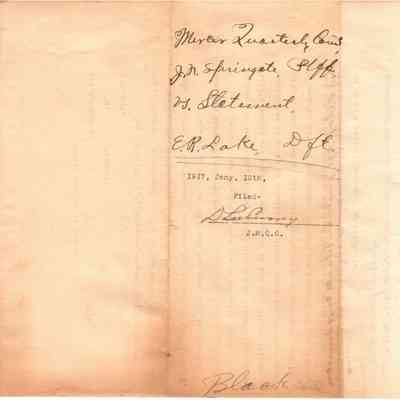 Mercer Quarterly Court
J.N. Springate Plff.
vs. Statement.
E.R. Lake, Dft.
1927, Jany. 10th,
Filed-
J.M.Q.C.
Black